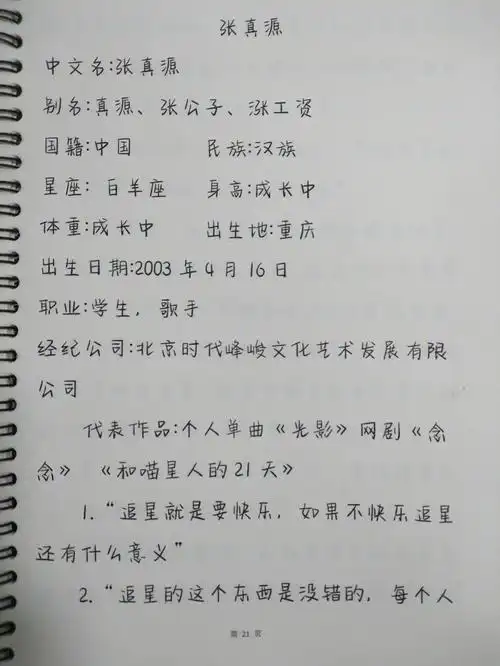 张真源
中文名:张真源
别名:真源、张公子、涨工资
国籍:中国 民族:汉族
星座: 白羊座 身高:成长中
体重:成长中 出生地:重庆
出生日期:2003 年 4 月 16 日
职业:学生, 歌手
经纪公司:北京时代峰峻文化艺术发展有限
公司
代表作品:个人单曲《光影》网剧《念
念》 《和喵星人的 21 天》
1.“追星就是要快乐, 如果不快乐追星
还有什么意义”
2.“追星的这个东西是没错的, 每个人
第 21 页